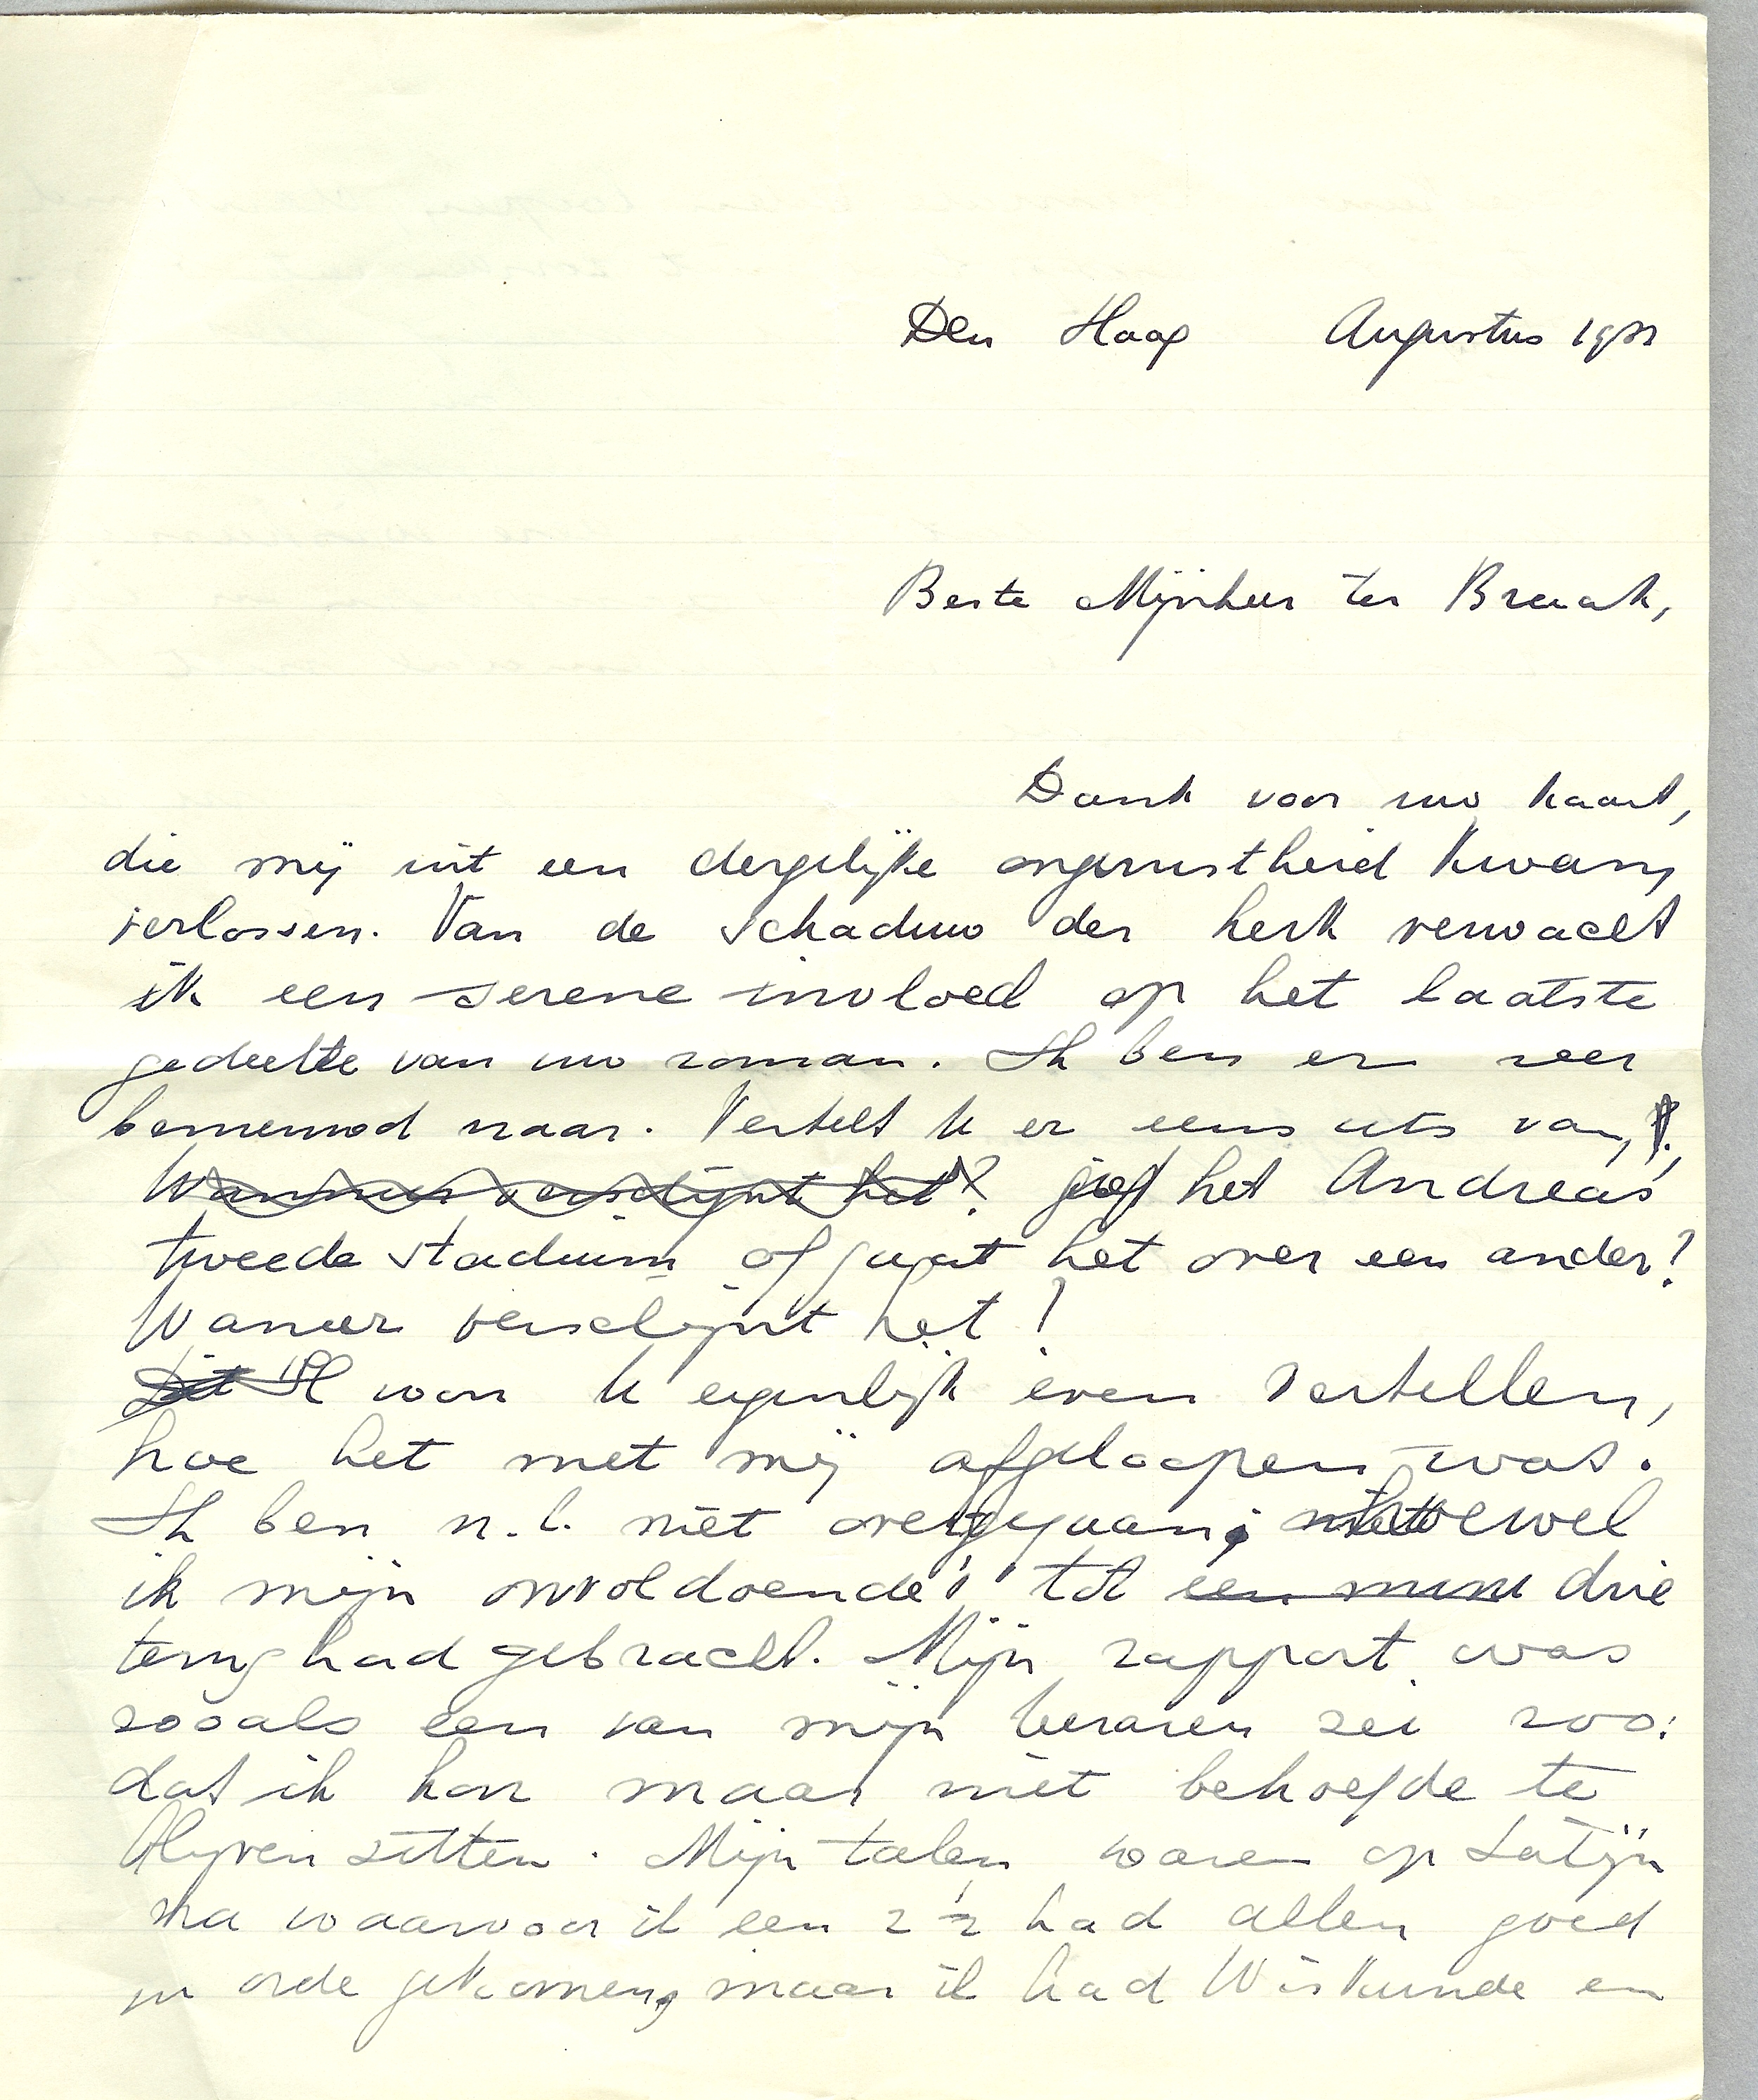 Den Haag Augustus 1932
Beste Mijnheer ter Braak,
Dank voor uw kaart,
die mij uit een dergelijke ongerustheid kwam
verlossen. Van de schaduw der kerk verwacht
ik een serene invloed op het laatste
gedeelte van uw roman. Ik ben er zeer
benieuwd naar. Vertelt U er eens iets van,
Wanneer verschijnt het? het Andreas'
tweede stadium of gaat het over een ander?
Waneer verschijnt het?
Dit Ik won U eigenlijk even vertellen,
hoe het met mij afgeloopen was.
Ik ben n.l. niet overgegaan; hoewel
ik mijn onvoldoende's tot een min drie
terug had gebracht. Mijn rapport was
zooals een van mijn leraren zei zoo:
dat ik kon maar niet behoefde te
blijven zitten. Mijn talen waren op Latijn
na waarvoor ik een 2½ had allen goed
in orde gekomen, maar ik had Wiskunde en